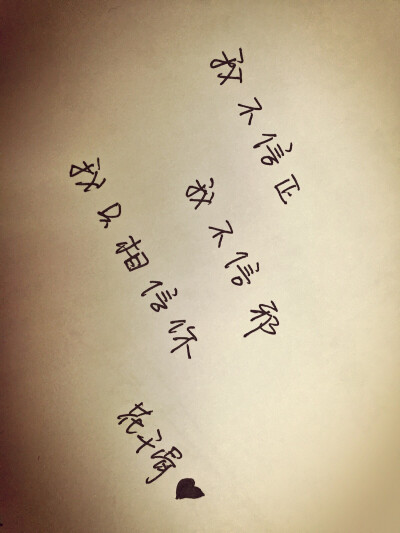 我不信正
我不信邪
我只相信你
花千骨